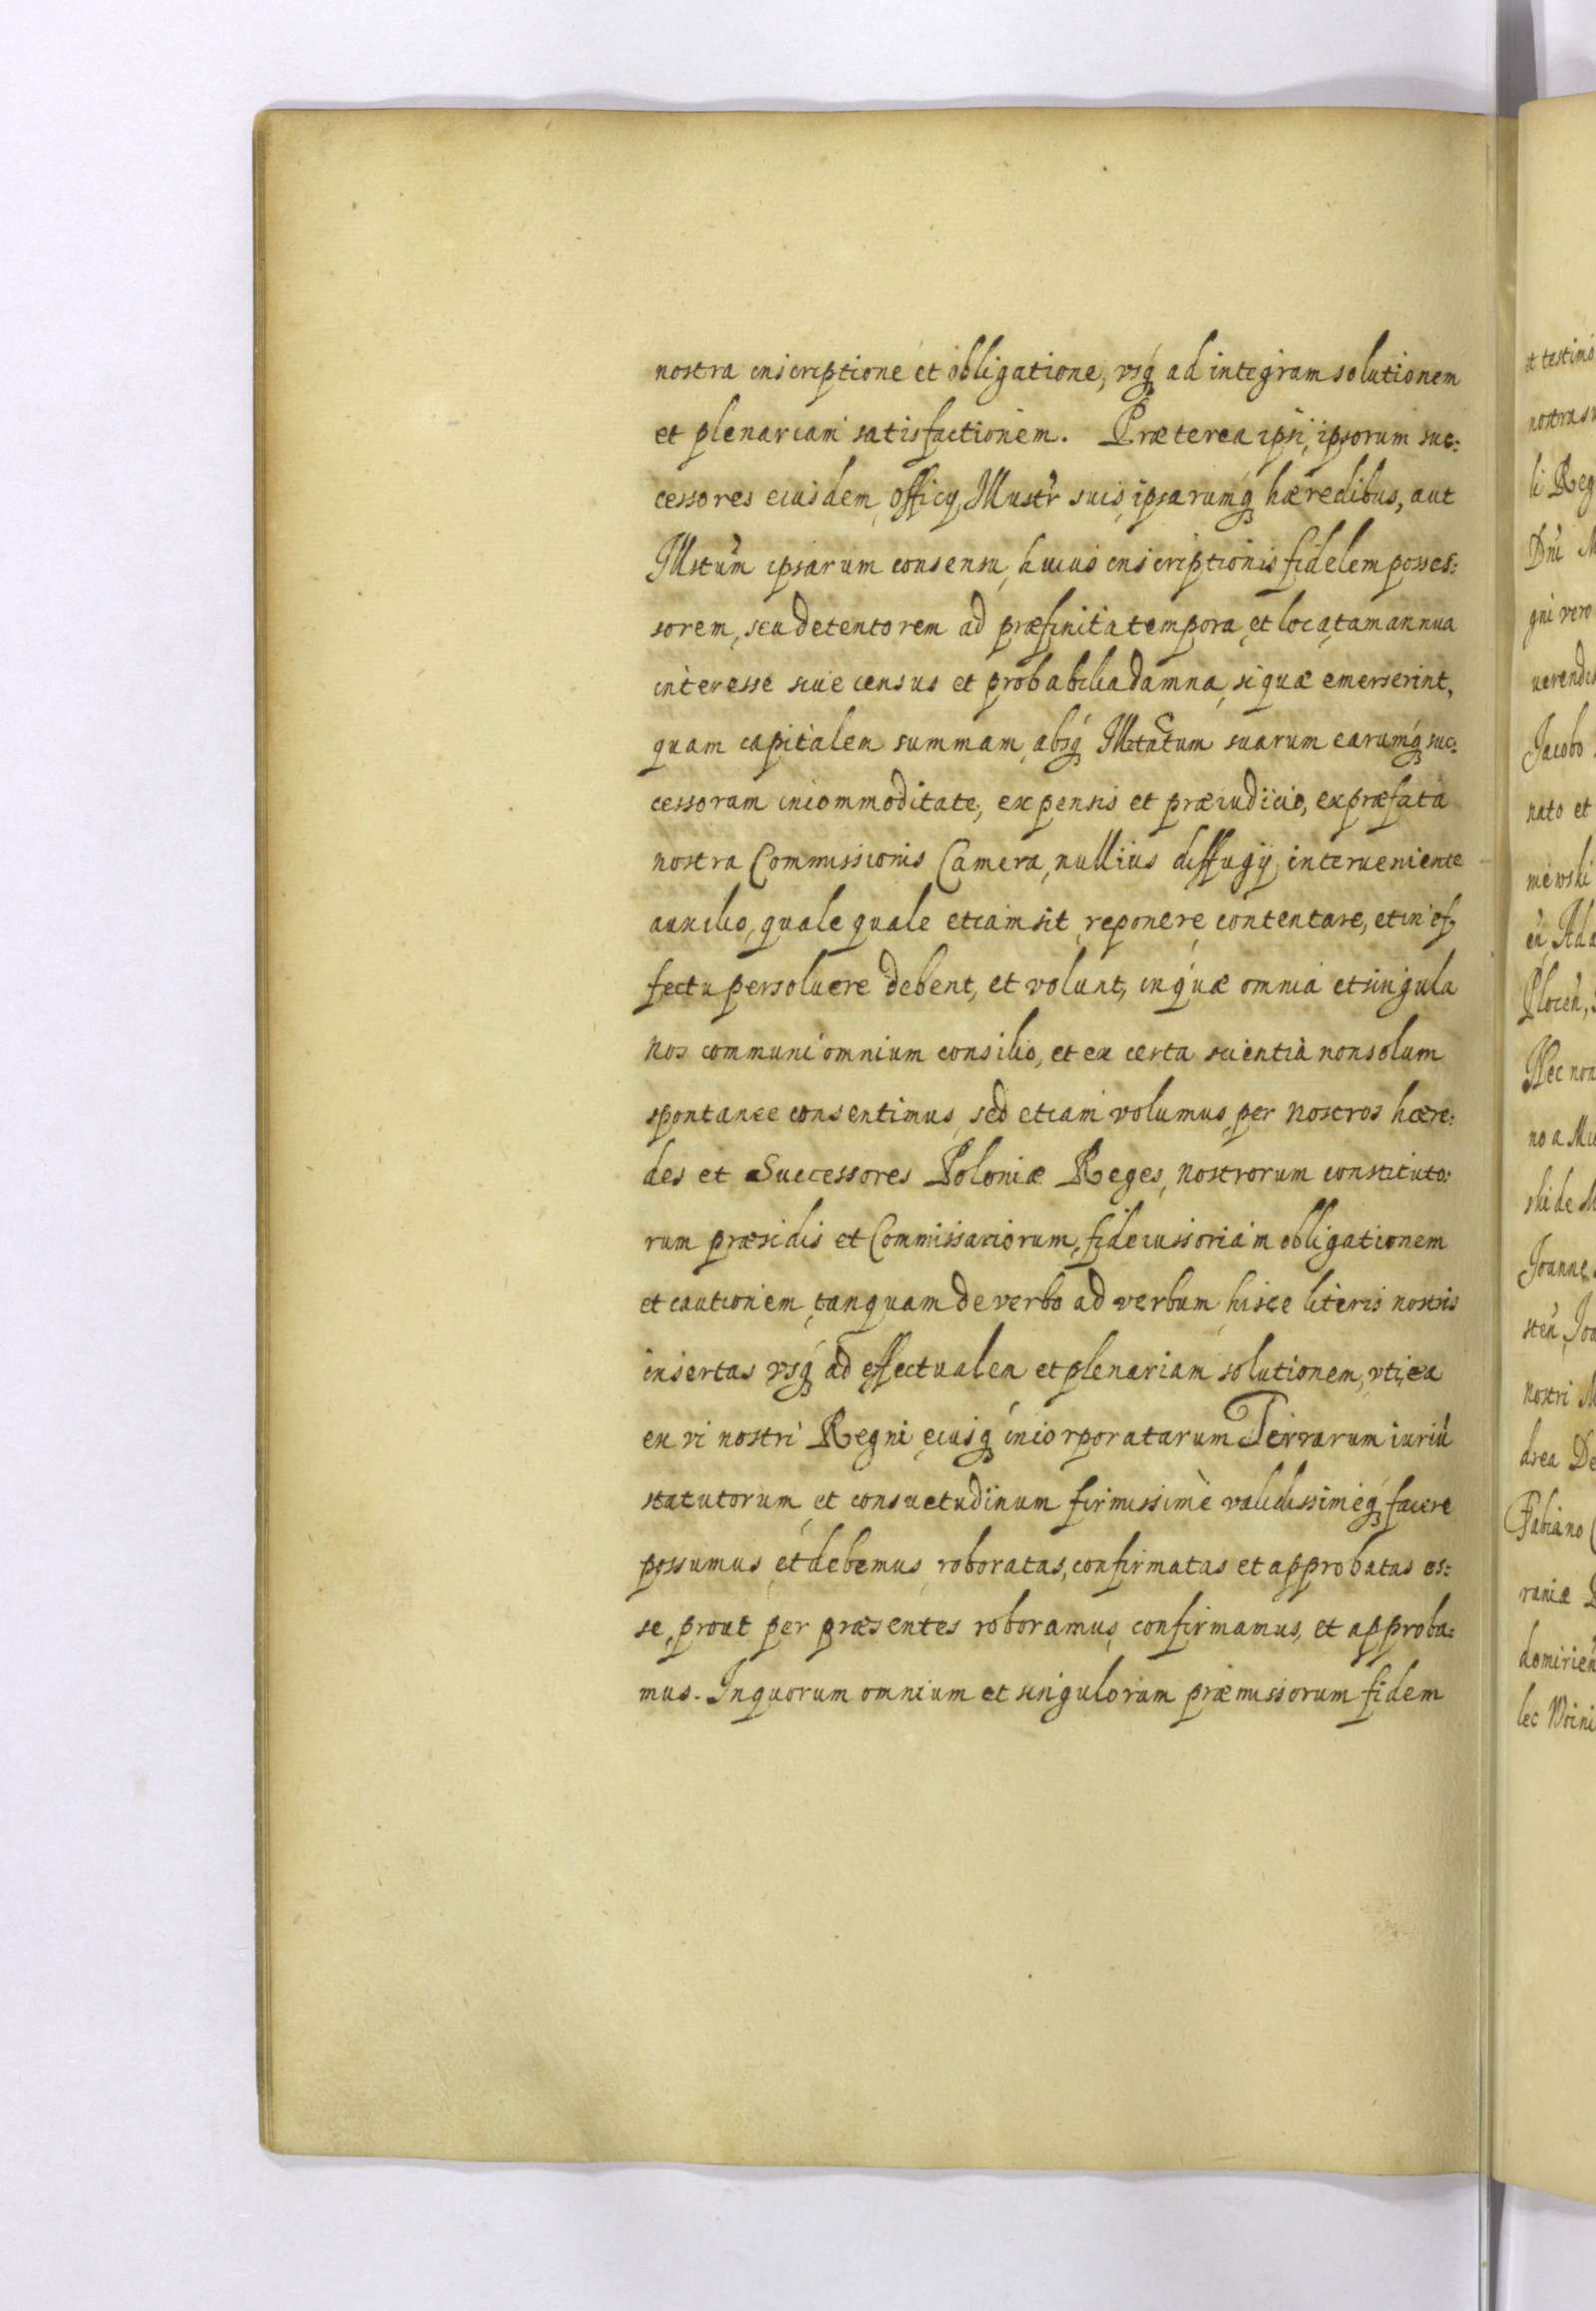 nostra inscriptione et obligatione, vsq́ ad integram solutionem
et plenariam satisfactionem. Præterea ipsi, ipsorum suc:
cessores eiusdem, officij, Illustr̃ suis, ipsarumq́ hæredibus, aut
Illstum̃ ipsarum consensu, huius inscriptionis fidelem posses:
sorem, seu detentorem ad præfinita tempora, et loca, tam annua
interesse siue census et probabilia damna, si quæ emerserint,
quam capitalem summam, absq́ Illrtatum suarum earumq́ suc:
cessorum incommoditate, expensis et præiudicio, ex præfata
nostra Commissionis Camera, nullius diffugij interueniente
auxilio, quale quale etiam sit, reponere, contentare, et in ef,
fectu persoluere debent, et volunt, in quæ omnia et singula
nos communi omnium consilio, et ex certa scientia non solum
spontanee consentimus, sed etiam volumus, per nostros hære:
des et Successores Poloniæ Reges, nostrorum constituto:
rum præsidis et Commissariorum, fideiussoriam obligationem
et cautionem, tanquam de verbo ad verbum, hisce literis nostris
insertas vsq́ ad effectualem et plenariam solutionem, vti, ea
ex vi nostri Regni eiusq́ incorporatarum Terrarum iuriũ
statutorum, et consuetudinum firmissimè validissimeq́ facere
possumus, et debemus, roboratas, confirmatas et approbatas es:
se, prout per præsentes roboramus, confirmamus, et approba:
mus. In quorum omnium et singulorum præmissorum fidem
et testimo
nostras
li Reg
Dni M
gni vero
uerendis
Jacobo
nato et
niewski
Ada
Plocen̄,
Nec non
no a Mu
ski de
Joanne
sten̄, Joa
nostri M
drea De
Fabiano
raniæ
domirien̄
lec Woini